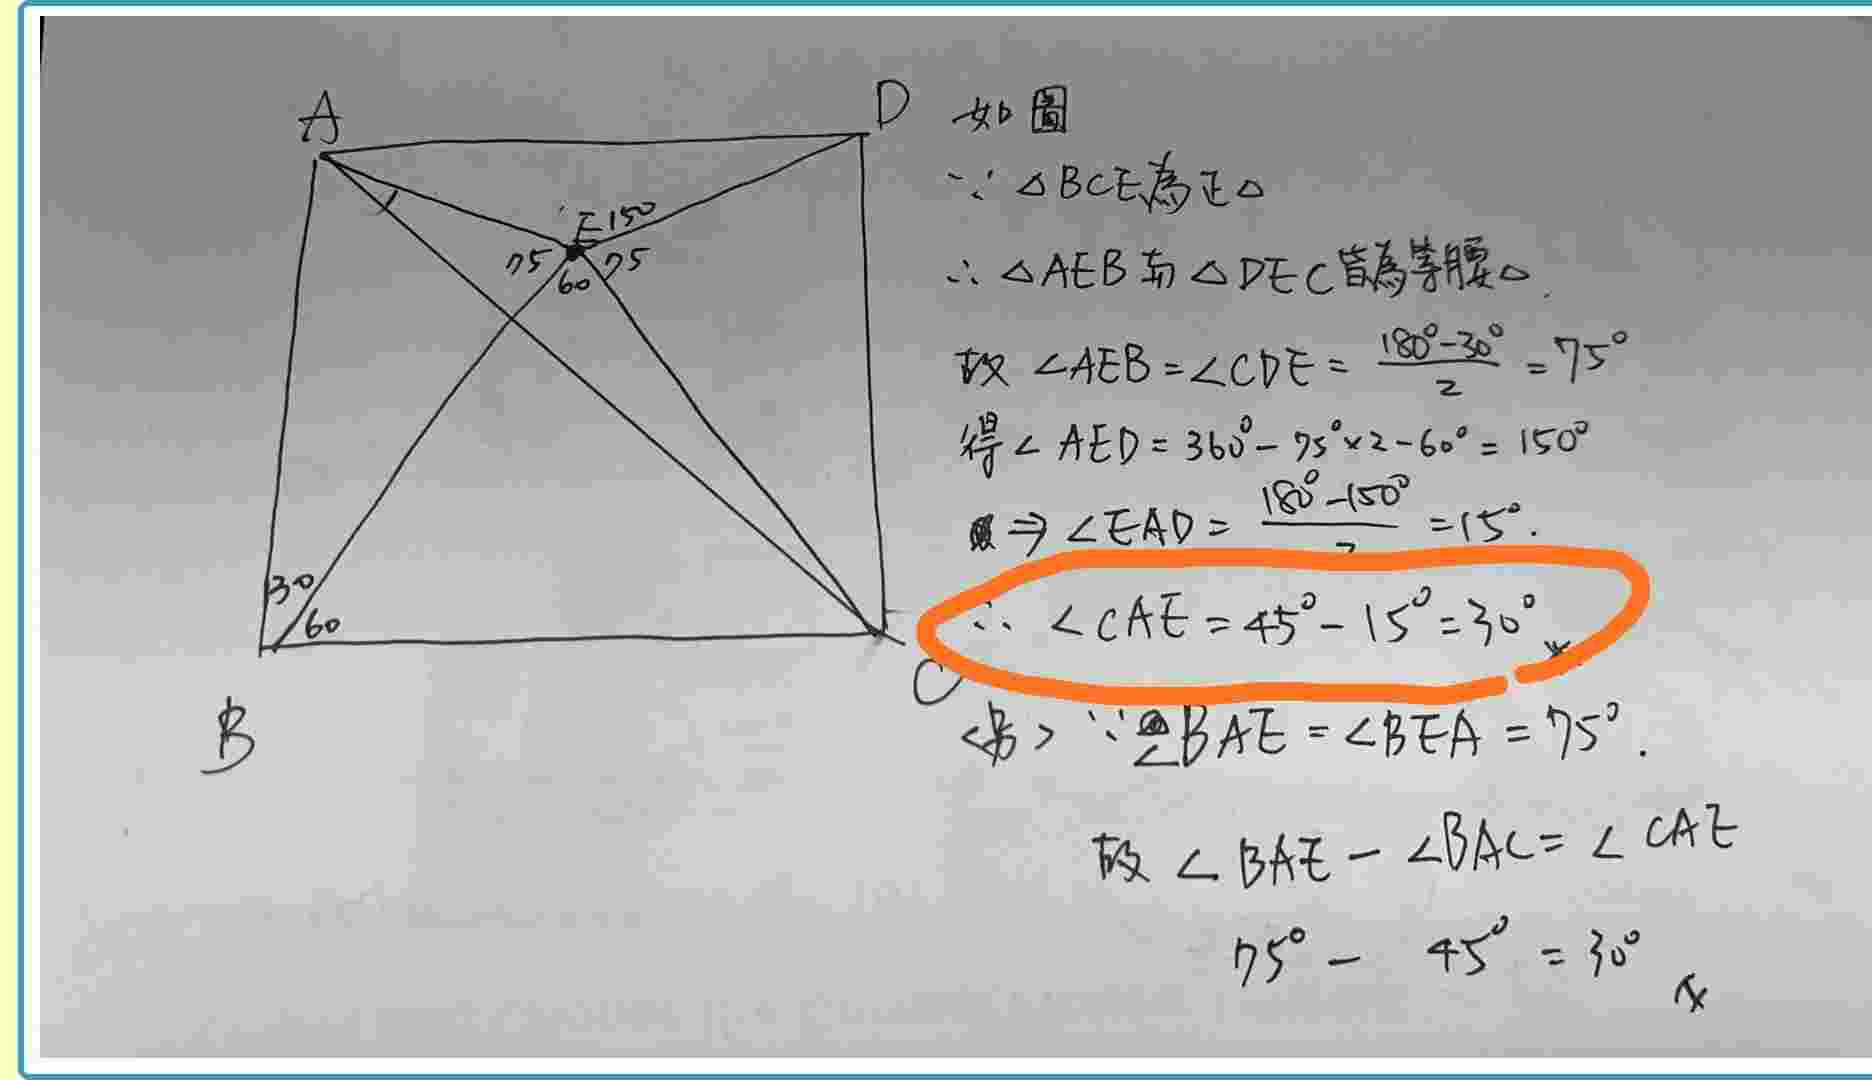 A
D
E 150
75
75
60
30
60
B
C
如圖
∵ △BCE為正△
∴ △AEB與△DEC皆為等腰△.
故 ∠AEB=∠CDE= (180°-30°)/2 =75°
得∠AED=360°-75°×2-60°=150°
⇒ ∠EAD= (180°-150°)/2 =15°.
∴ ∠CAE=45°-15°=30°
<另> ∵∠BAE=∠BEA=75°.
故 ∠BAE-∠BAC=∠CAE
75°- 45°=30°